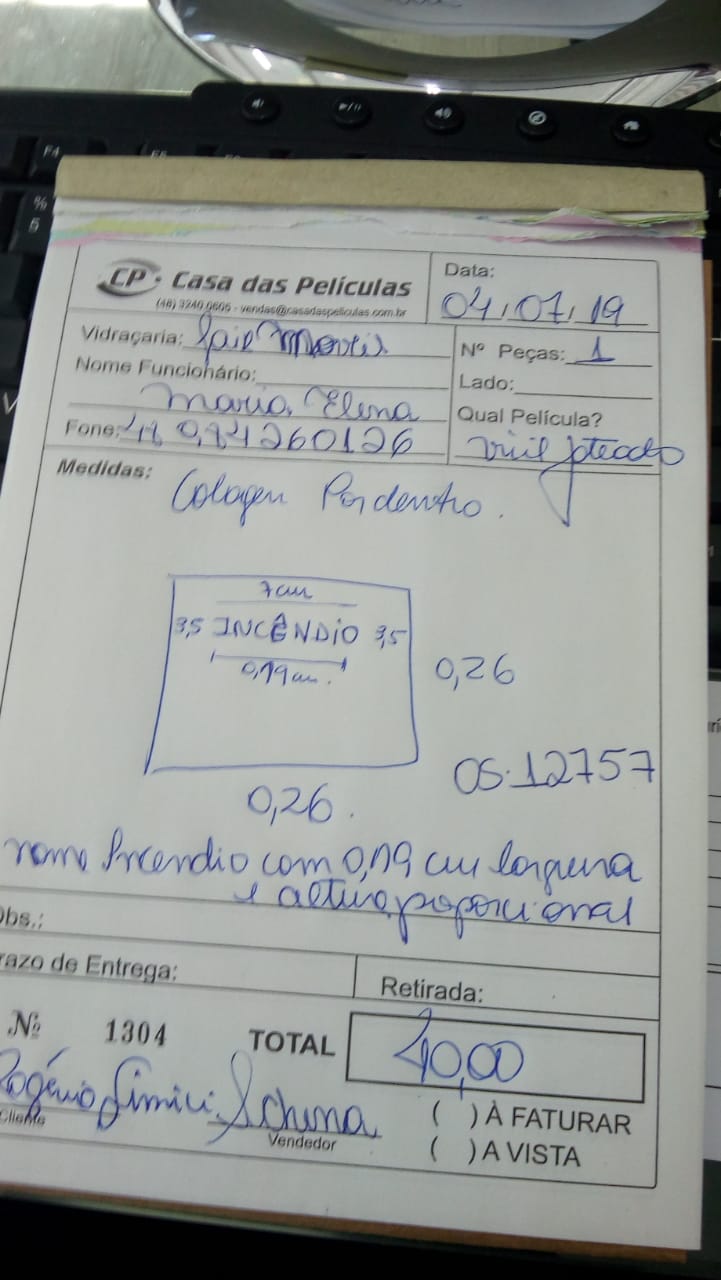 F4
%
5
CP Casa das Películas
(48) 3240 0605 - vendas@casadaspeliculas.com.br
Data: 04/07/19
Vidraçaria:
Nº Peças: 1
Nome Funcionário:
Lado:
Maria Elena
Qual Película?
Fone: 48 9,84260126
Medidas:
Colagen Por dentro.
7cm
3,5 INCÊNDIO 3,5
0,19 cm.
0,26
OS. 12757
0,26.
nome Incendio com 0,19 cm largura
e altura proporcional
Obs.:
razo de Entrega:
Retirada:
Nº 1304
TOTAL 40,00
Rogério
Cliente
Vendedor
( ) À FATURAR
( ) A VISTA